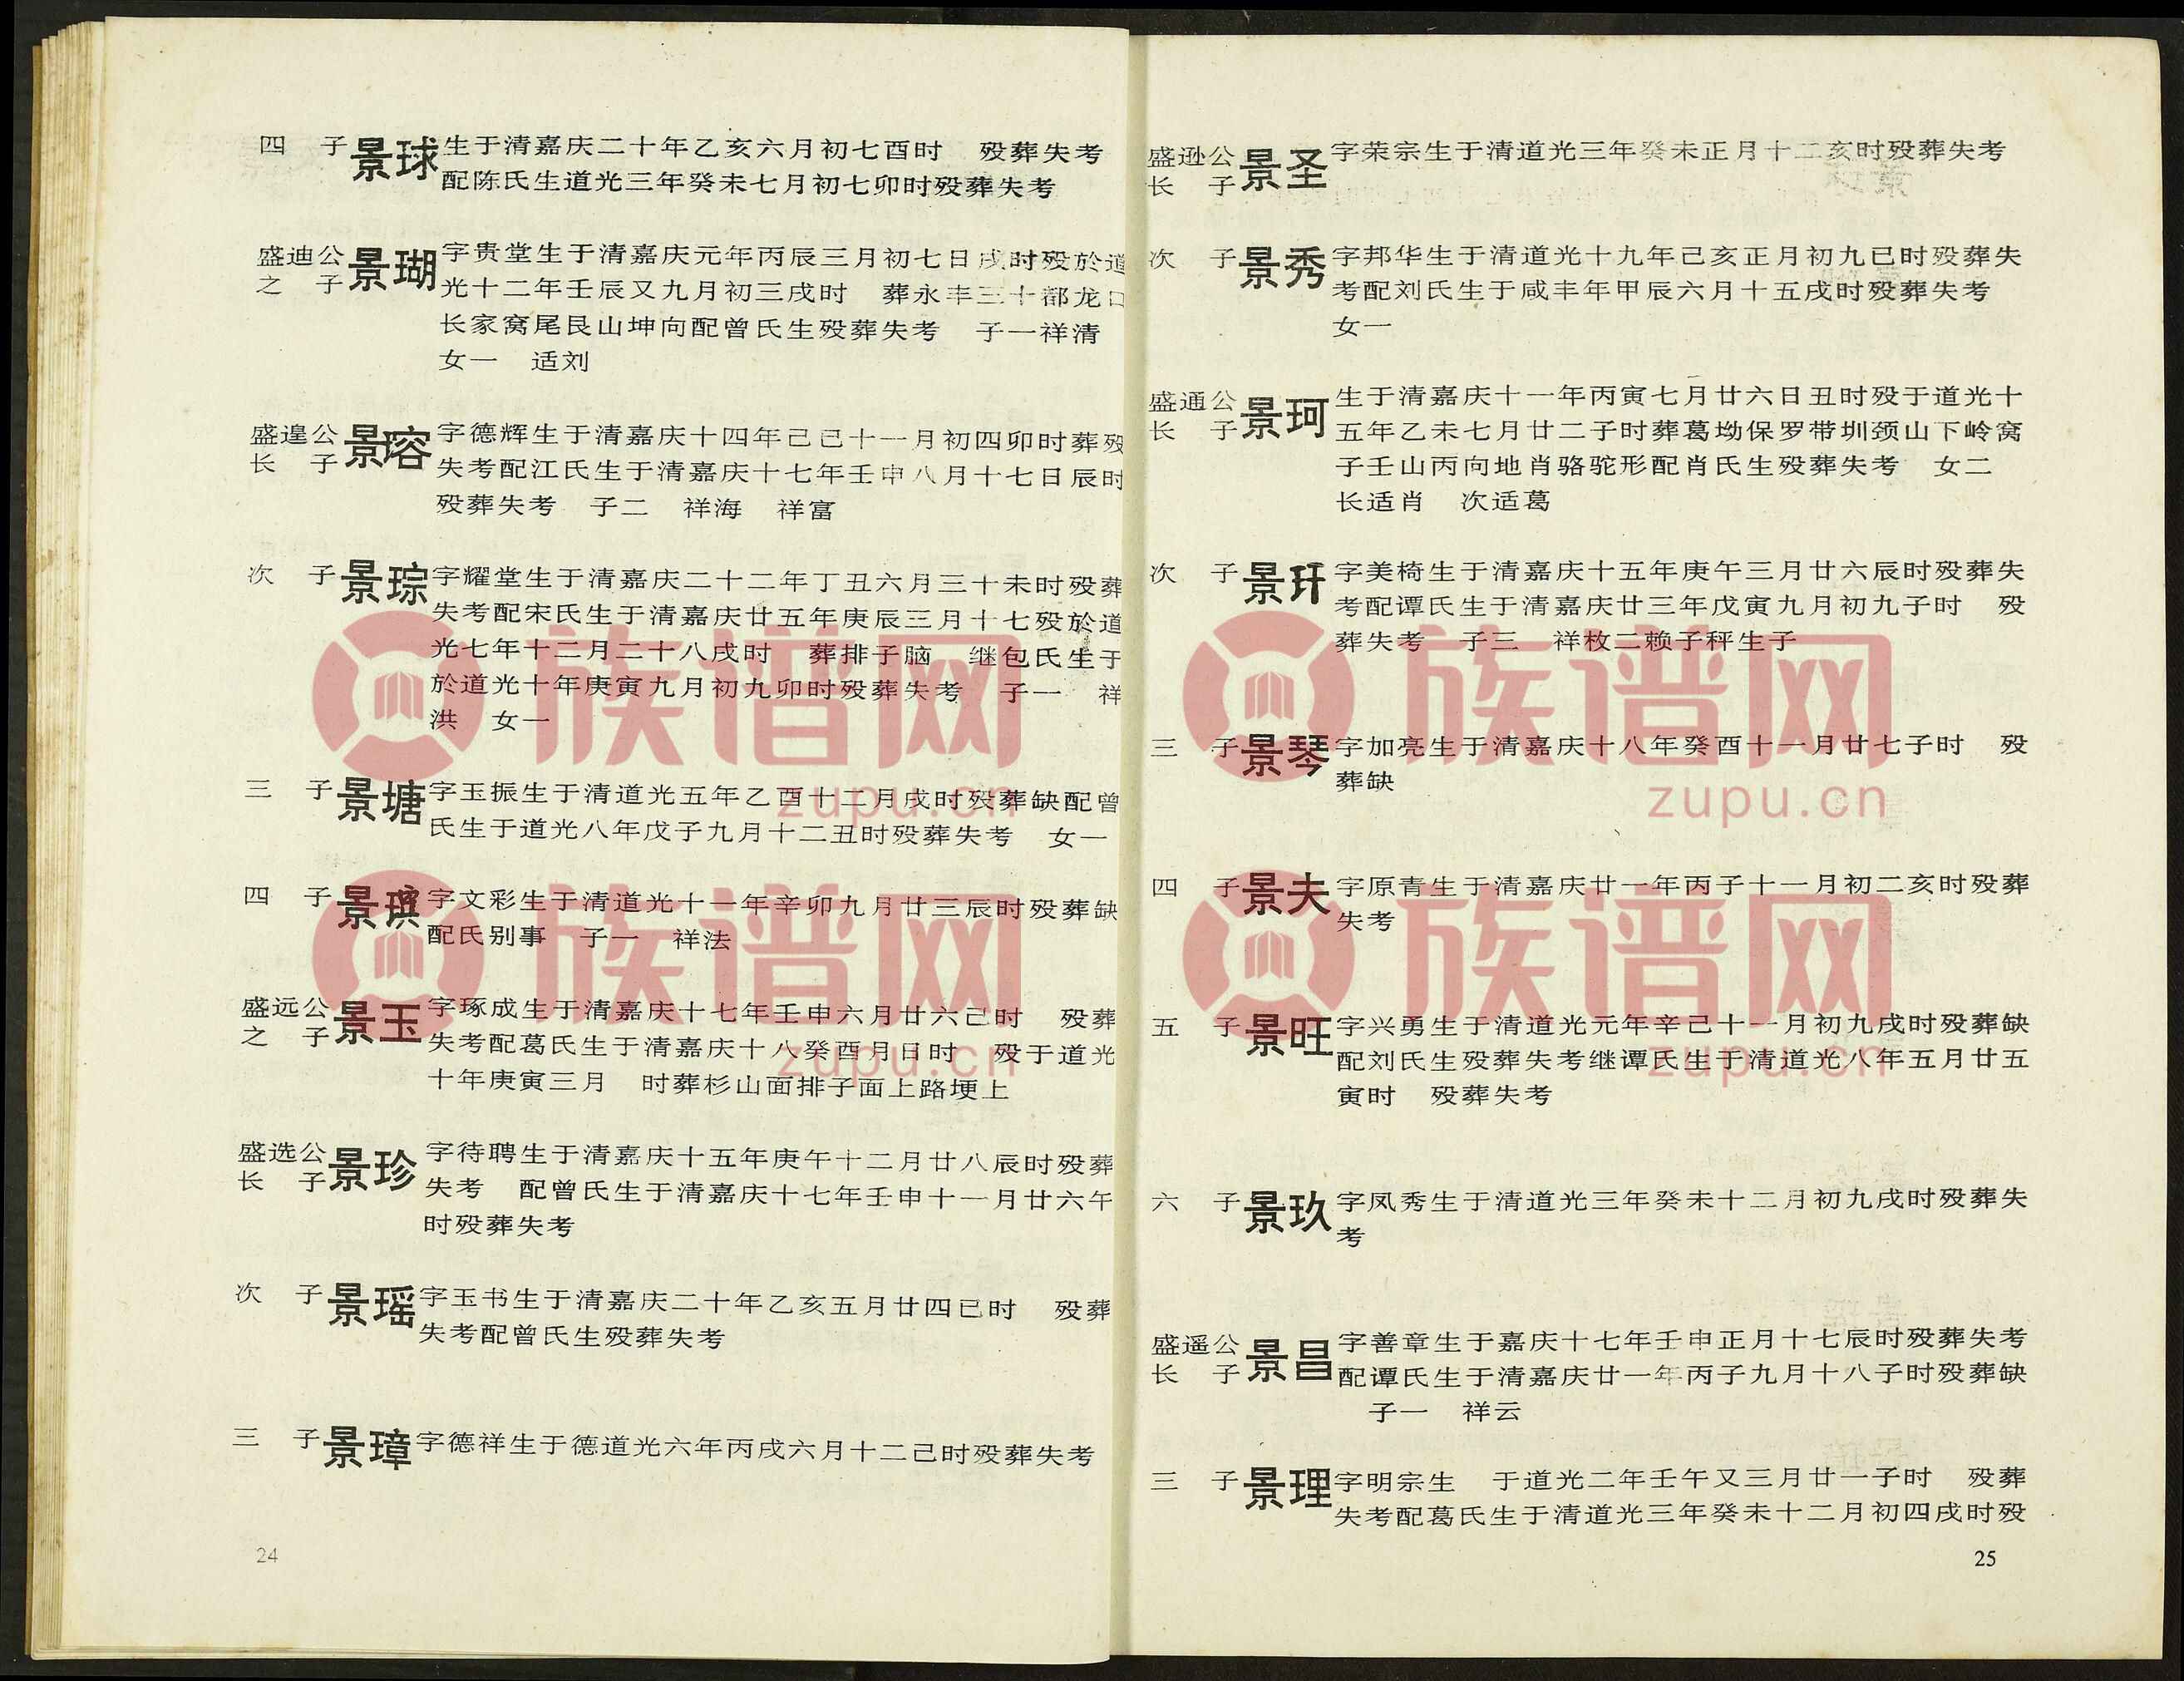 四　子 景球 生于清嘉庆二十年乙亥六月初七酉时　殁葬失考
配陈氏生道光三年癸未七月初七卯时殁葬失考
盛迪公之子 景瑚 字贵堂生于清嘉庆元年丙辰三月初七日戌时殁於道
光十二年壬辰又九月初三戌时　葬永丰三十都龙口
长家窝尾艮山坤向配曾氏生殁葬失考　子一祥清
女一　适刘
盛遑公长子 景瑢 字德辉生于清嘉庆十四年己巳十一月初四卯时葬殁
失考配江氏生于清嘉庆十七年壬申八月十七日辰时
殁葬失考　子二　祥海　祥富
次　子 景琮 字耀堂生于清嘉庆二十二年丁丑六月三十未时殁葬
失考配宋氏生于清嘉庆廿五年庚辰三月十七殁於道
光七年十二月二十八戌时　葬排子脑　继包氏生于
於道光十年庚寅九月初九卯时殁葬失考　子一　祥
洪　女一
三　子 景塘 字玉振生于清道光五年乙酉十二月戌时殁葬缺配曾
氏生于道光八年戊子九月十二丑时殁葬失考　女一
四　子 景瑸 字文彩生于清道光十一年辛卯九月廿三辰时殁葬缺
配氏别事　子一　祥法
盛远公之子 景玉 字琢成生于清嘉庆十七年壬申六月廿六己时　殁葬
失考配葛氏生于清嘉庆十八癸酉月日时　殁于道光
十年庚寅三月　时葬杉山面排子面上路埂上
盛选公长子 景珍 字待聘生于清嘉庆十五年庚午十二月廿八辰时殁葬
失考　配曾氏生于清嘉庆十七年壬申十一月廿六午
时殁葬失考
次　子 景瑶 字玉书生于清嘉庆二十年乙亥五月廿四已时　殁葬
失考配曾氏生殁葬失考
三　子 景璋 字德祥生于德道光六年丙戌六月十二己时殁葬失考
24
盛逊公长子 景圣 字荣宗生于清道光三年癸未正月十二亥时殁葬失考
次　子 景秀 字邦华生于清道光十九年己亥正月初九已时殁葬失
考配刘氏生于咸丰年甲辰六月十五戌时殁葬失考
女一
盛通公长子 景珂 生于清嘉庆十一年丙寅七月廿六日丑时殁于道光十
五年乙未七月廿二子时葬葛坳保罗带圳颈山下岭窝
子壬山丙向地肖骆驼形配肖氏生殁葬失考　女二
长适肖　次适葛
次　子 景玕 字美椅生于清嘉庆十五年庚午三月廿六辰时殁葬失
考配谭氏生于清嘉庆廿三年戊寅九月初九子时　殁
葬失考　子三　祥枚二赖子秤生子
三　子 景琴 字加亮生于清嘉庆十八年癸酉十一月廿七子时　殁
葬缺
四　子 景夫 字原青生于清嘉庆廿一年丙子十一月初二亥时殁葬
失考
五　子 景旺 字兴勇生于清道光元年辛己十一月初九戌时殁葬缺
配刘氏生殁葬失考继谭氏生于清道光八年五月廿五
寅时　殁葬失考
六　子 景玖 字凤秀生于清道光三年癸未十二月初九戌时殁葬失
考
盛遥公长子 景昌 字善章生于嘉庆十七年壬申正月十七辰时殁葬失考
配谭氏生于清嘉庆廿一年丙子九月十八子时殁葬缺
子一　祥云
三　子 景理 字明宗生　于道光二年壬午又三月廿一子时　殁葬
失考配葛氏生于清道光三年癸未十二月初四戌时殁
25
族谱网
zupu.cn
族谱网
zupu.cn
族谱网
zupu.cn
族谱网
zupu.cn